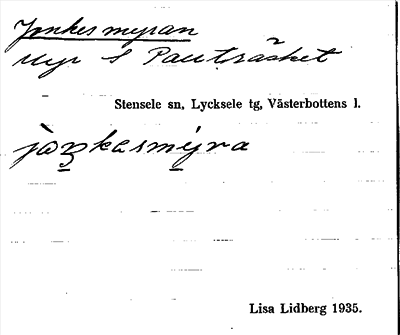 Jonkesmyran
myr S Pauträsket
Stensele sn, Lycksele tg, Västerbottens l.
Lisa Lidberg 1935.